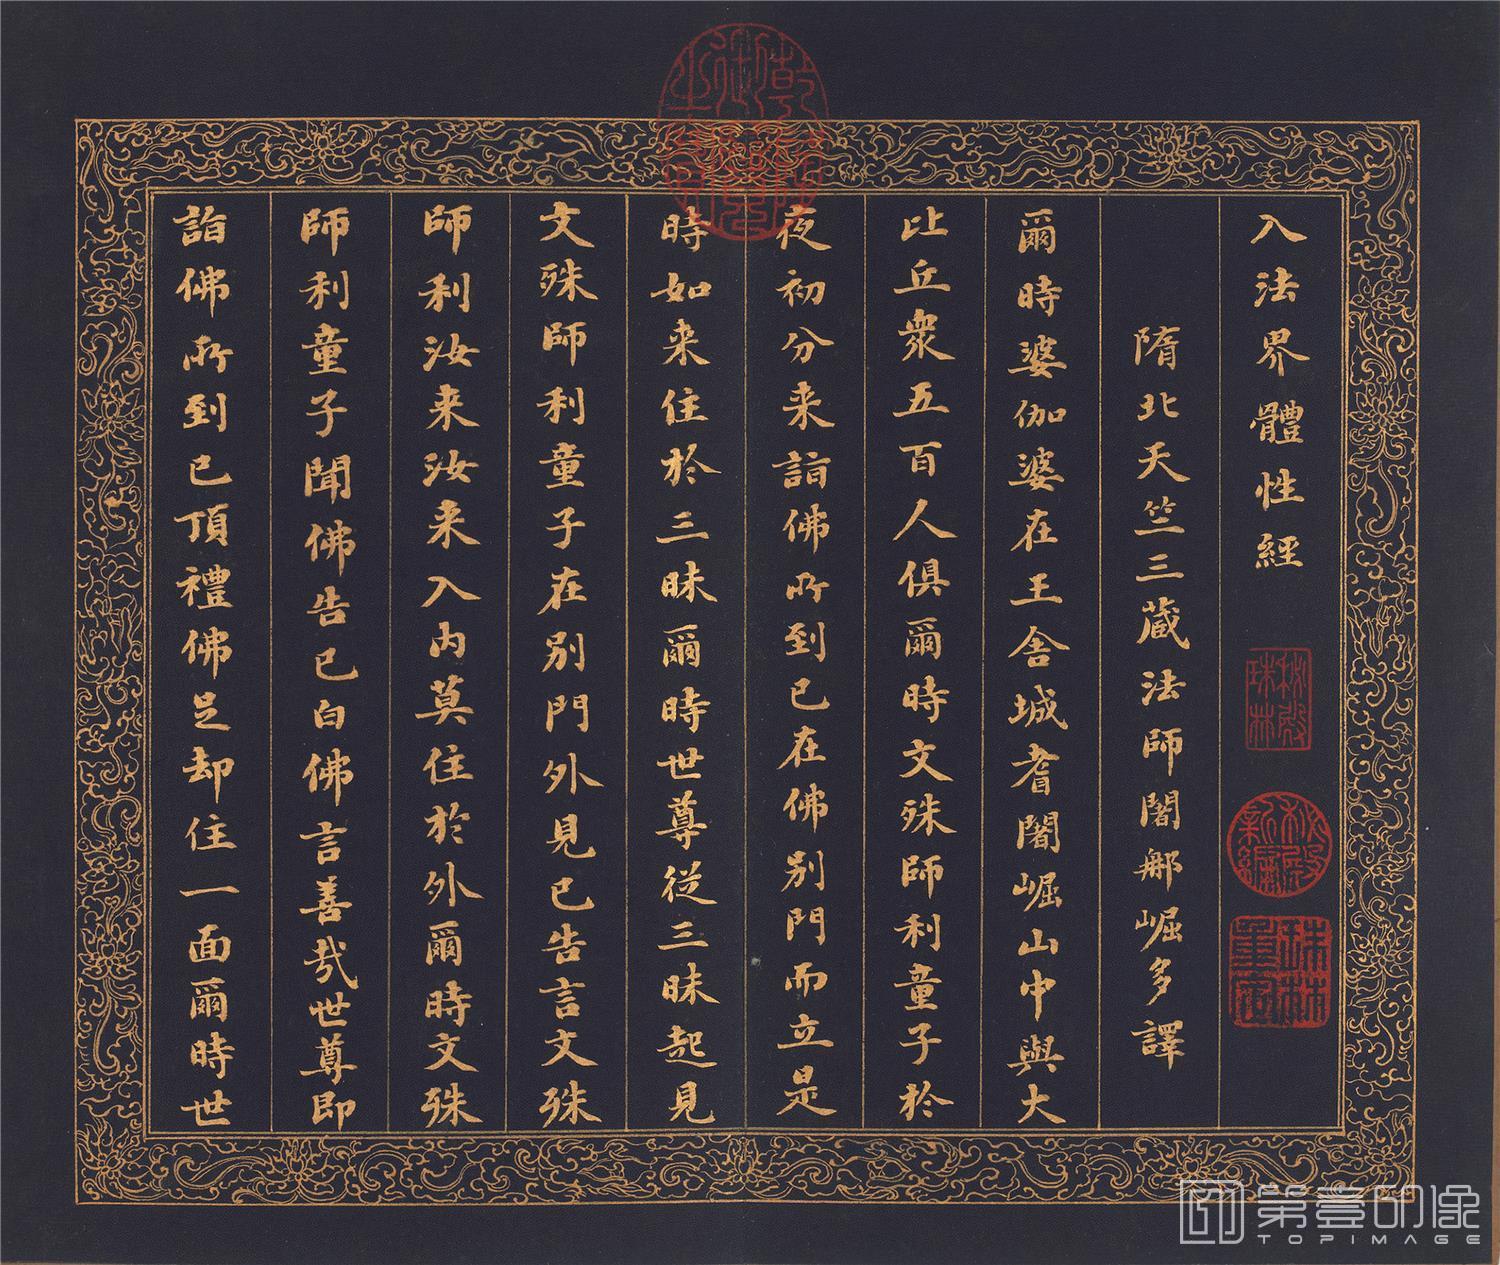 入法界體性經
隋北天竺三藏法師闍那崛多譯
爾時婆伽婆在王舍城耆闍崛山中與大
比丘衆五百人俱爾時文殊師利童子於
夜初分来詣佛所到已在佛別門而立是
時如来住於三昧爾時世尊從三昧起見
文殊師利童子在別門外見已告言文殊
師利汝来汝来入内莫住於外爾時文殊
師利童子聞佛告已白佛言善哉世尊即
詣佛所到已頂禮佛足却住一面爾時世
乾隆御覽之寶
秘殿珠林
秘殿新編
珠林重定
第壹印像
TOPIMAGE